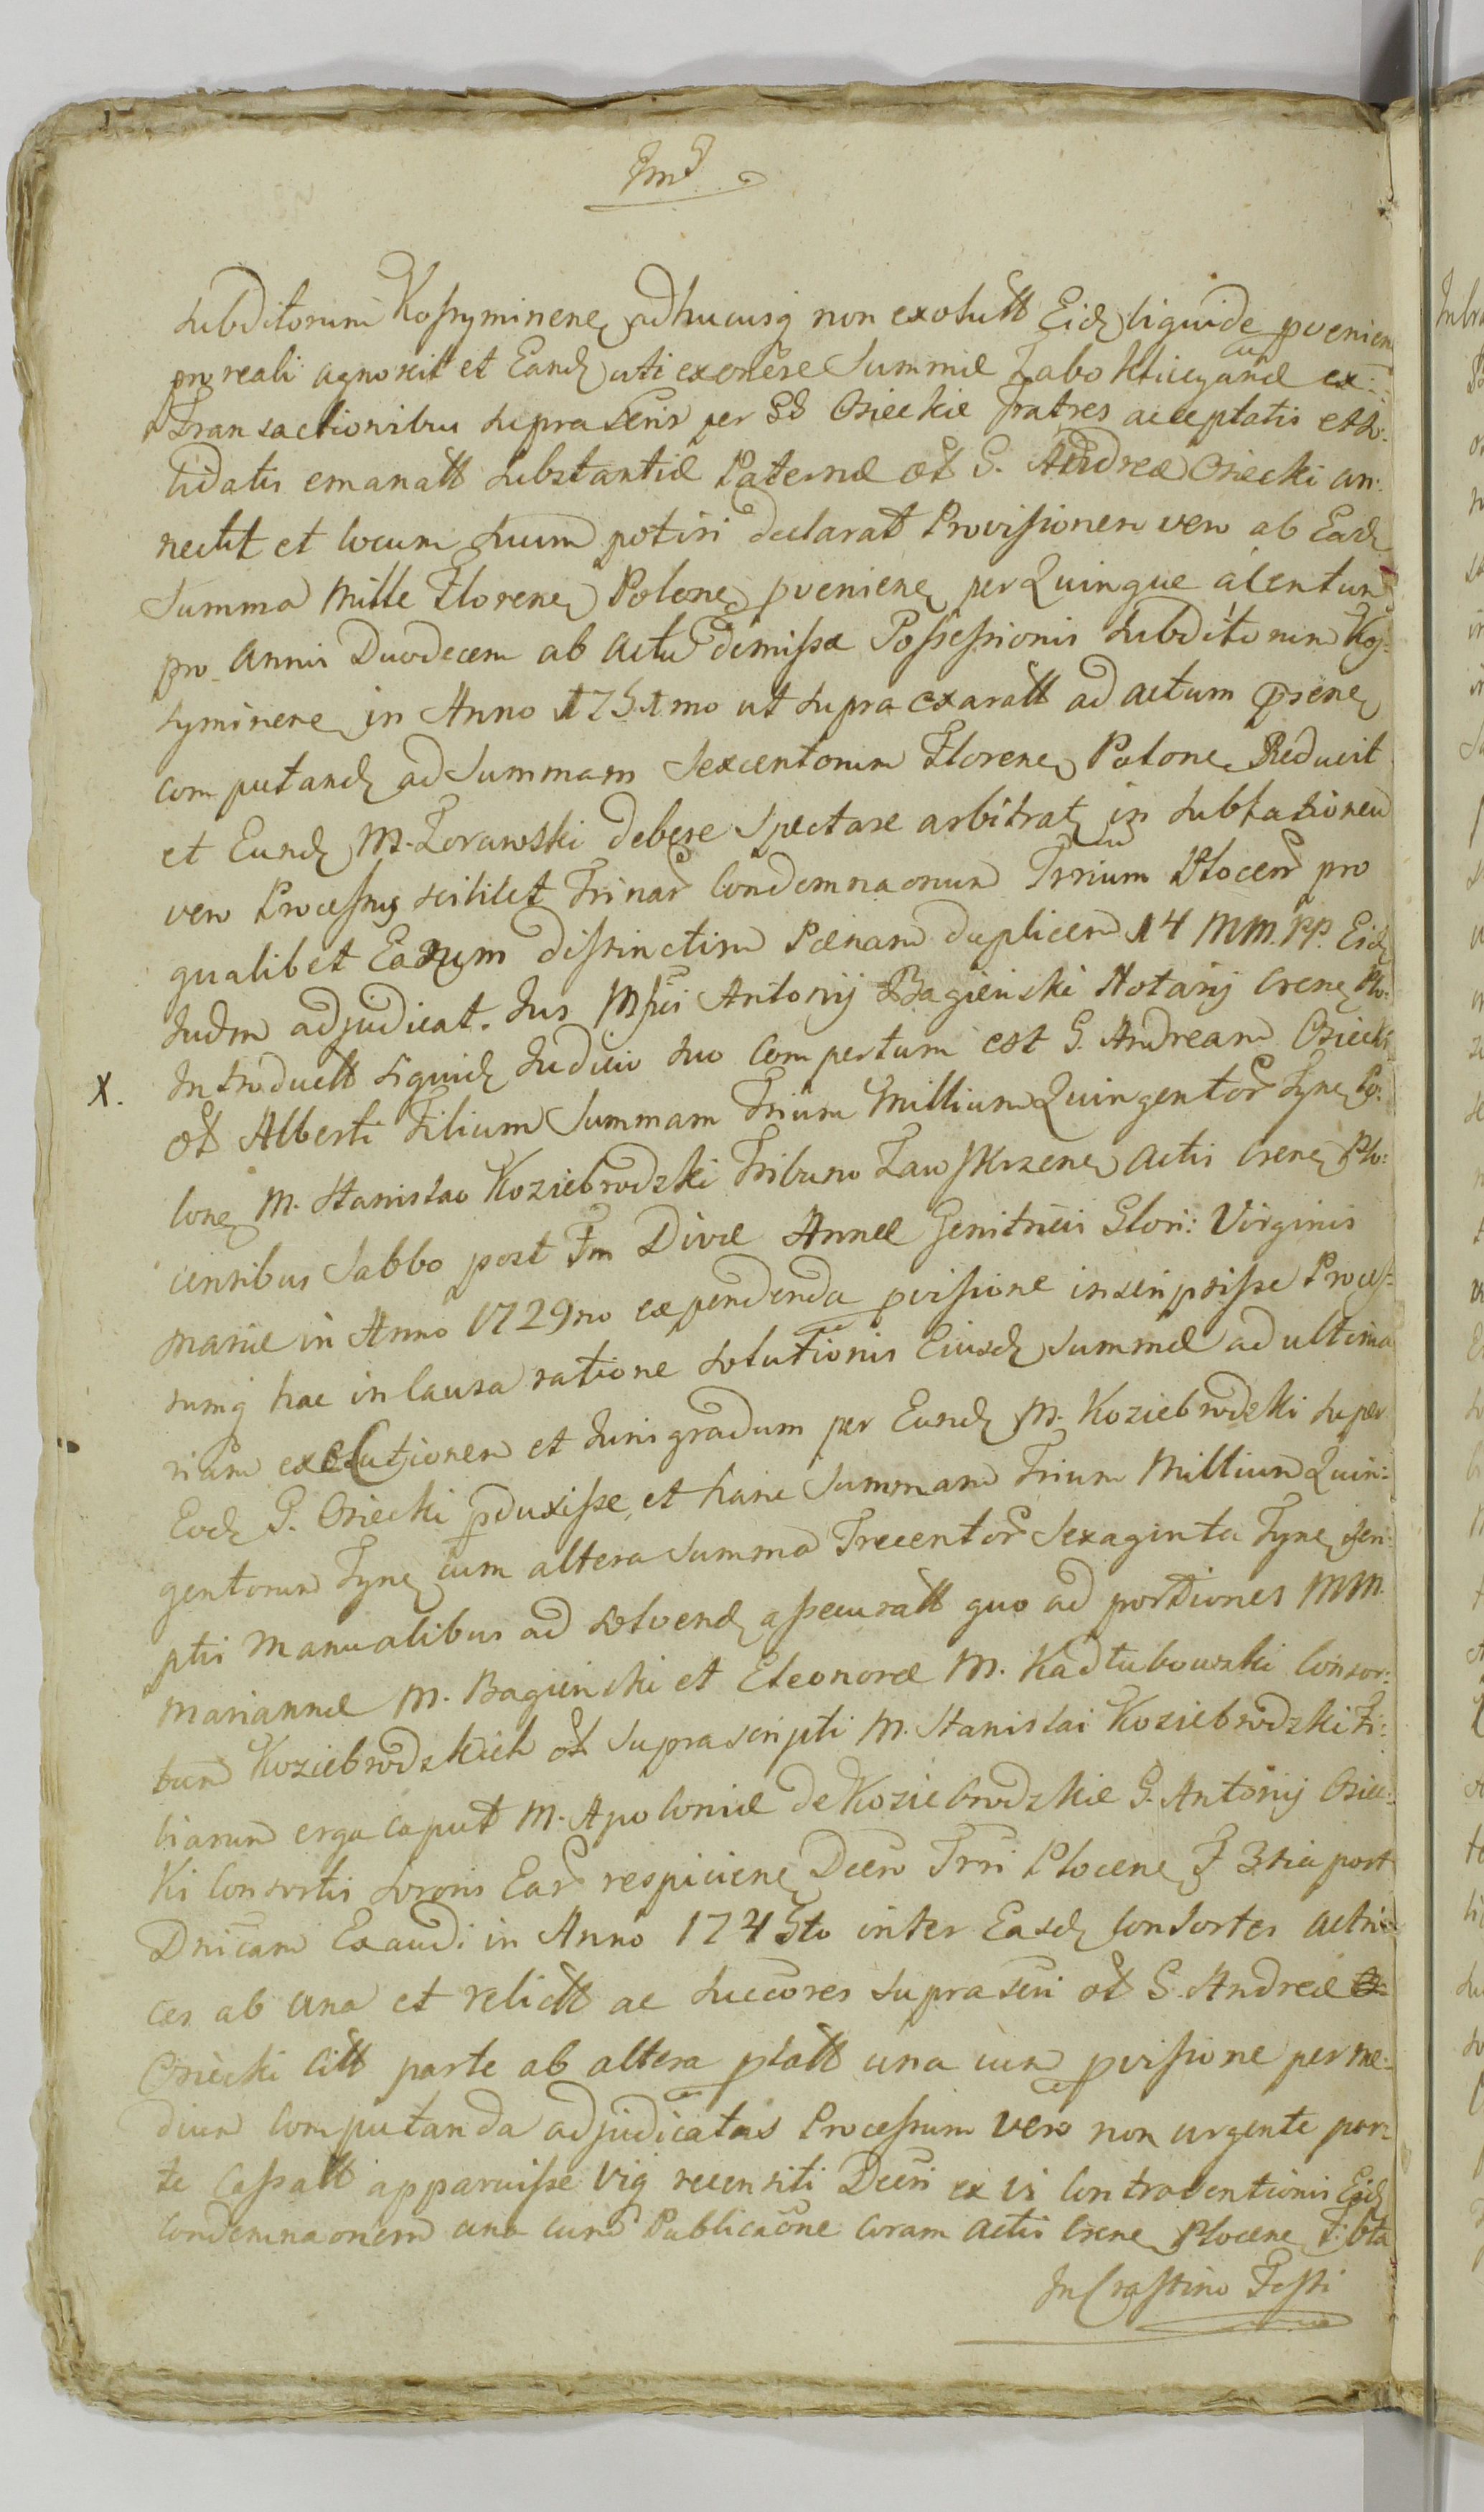 Subditorum Kossyminenẹ adhucusq non exolutt Eidẹ liquide pvenien
pro reali agnoscit et Eandẹ uti ex onere Summæ cum ex:
Transactionibus supra scris per GG Osieckie Fratres acceptatis et so:
lidatis emanatt Substantiæ Paternæ ol G. Andreæ Osiecki an:
nectit et locum suum potiri declarat Provisionem vero ab Eadẹ
Summa Mille Florenẹ Polonẹ pvenienẹ per Quinque a Centum
pro Annis Duodecem ab actu dimissæ Possessionis Subditorum Kos:
syminenẹ in Anno 1751mo ut supra exaratt ad actum psenẹ
computandẹ ad Summam Sexcentorum Florenẹ Polonẹ Reducit
et Eundẹ M. Zorawski debere Spectare arbitratẹ in
vero Processus scilicet Trinar Condemnaonum Trrium Plocen pro
qualibet Earum distinctim Pænam duplicem 14 MM. PP. Eidẹ
Judm adjudicat. Jus Mfci Antonij Bagienski Notarij Crenẹ Plo:
X. Introductt siquidẹ Judicio suo Compertum est G. Andream Osiecki
ol Alberti Filium Summam Trium Millium Quingentor Tynẹ Po:
lonẹ M. Stanislao Koziebrodzki Tribuno ZawsKrzenẹ Actis Crenẹ Plo:
censibus Sabbo post Fm Divæ Annæ Genitricis Glori: Virginis
Mariæ in Anno 1729no expendenda pvisione inscripsisse Proces:
sumq hac in Causa ratione solutionis Eiusdẹ Summæ ad ultima
riam executionem et Junigradum per Eundẹ M. Koziebrodzki super
Eodẹ G. Osiecki pduxisse, et hanc Summam Trium Millium Quin:
gentorum Tynẹ cum altera Summa Trecentor Sexaginta Tynẹ scri:
ptis Manualibus ad solvendẹ assecuratt quo ad portiones MM.
Mariannæ M. Bagienski et Eleonoræ M. Kadłubowski Consor:
tum Koziebrodzkich ol Suprascripti M. Stanislai Koziebrodzki Fi:
liarum erga caput M. Apoloniæ de Koziebrodzkie G. Antonij Osiec:
Ki Consortis Sororis Ear respicienẹ Decro Trri Plocenẹ F 3tia post
Dnicam Exaudi in Anno 1745to inter Easdẹ Consortes Actri:
ces ab una et relictt ac succores supra scri ol G. Andreæ
Osiecki Citt parte ab altera platt una cum pvisione per me:
dium Computanda adjudicatas Processum vero non urgente par:
te Cassatt apparuisse vig recensiti Decri ex vi Contraventionis Eidẹ
Condemnaonem una cum Publicaone coram Actis Crenẹ Plocenẹ F. 6ta
In Crastino Festi